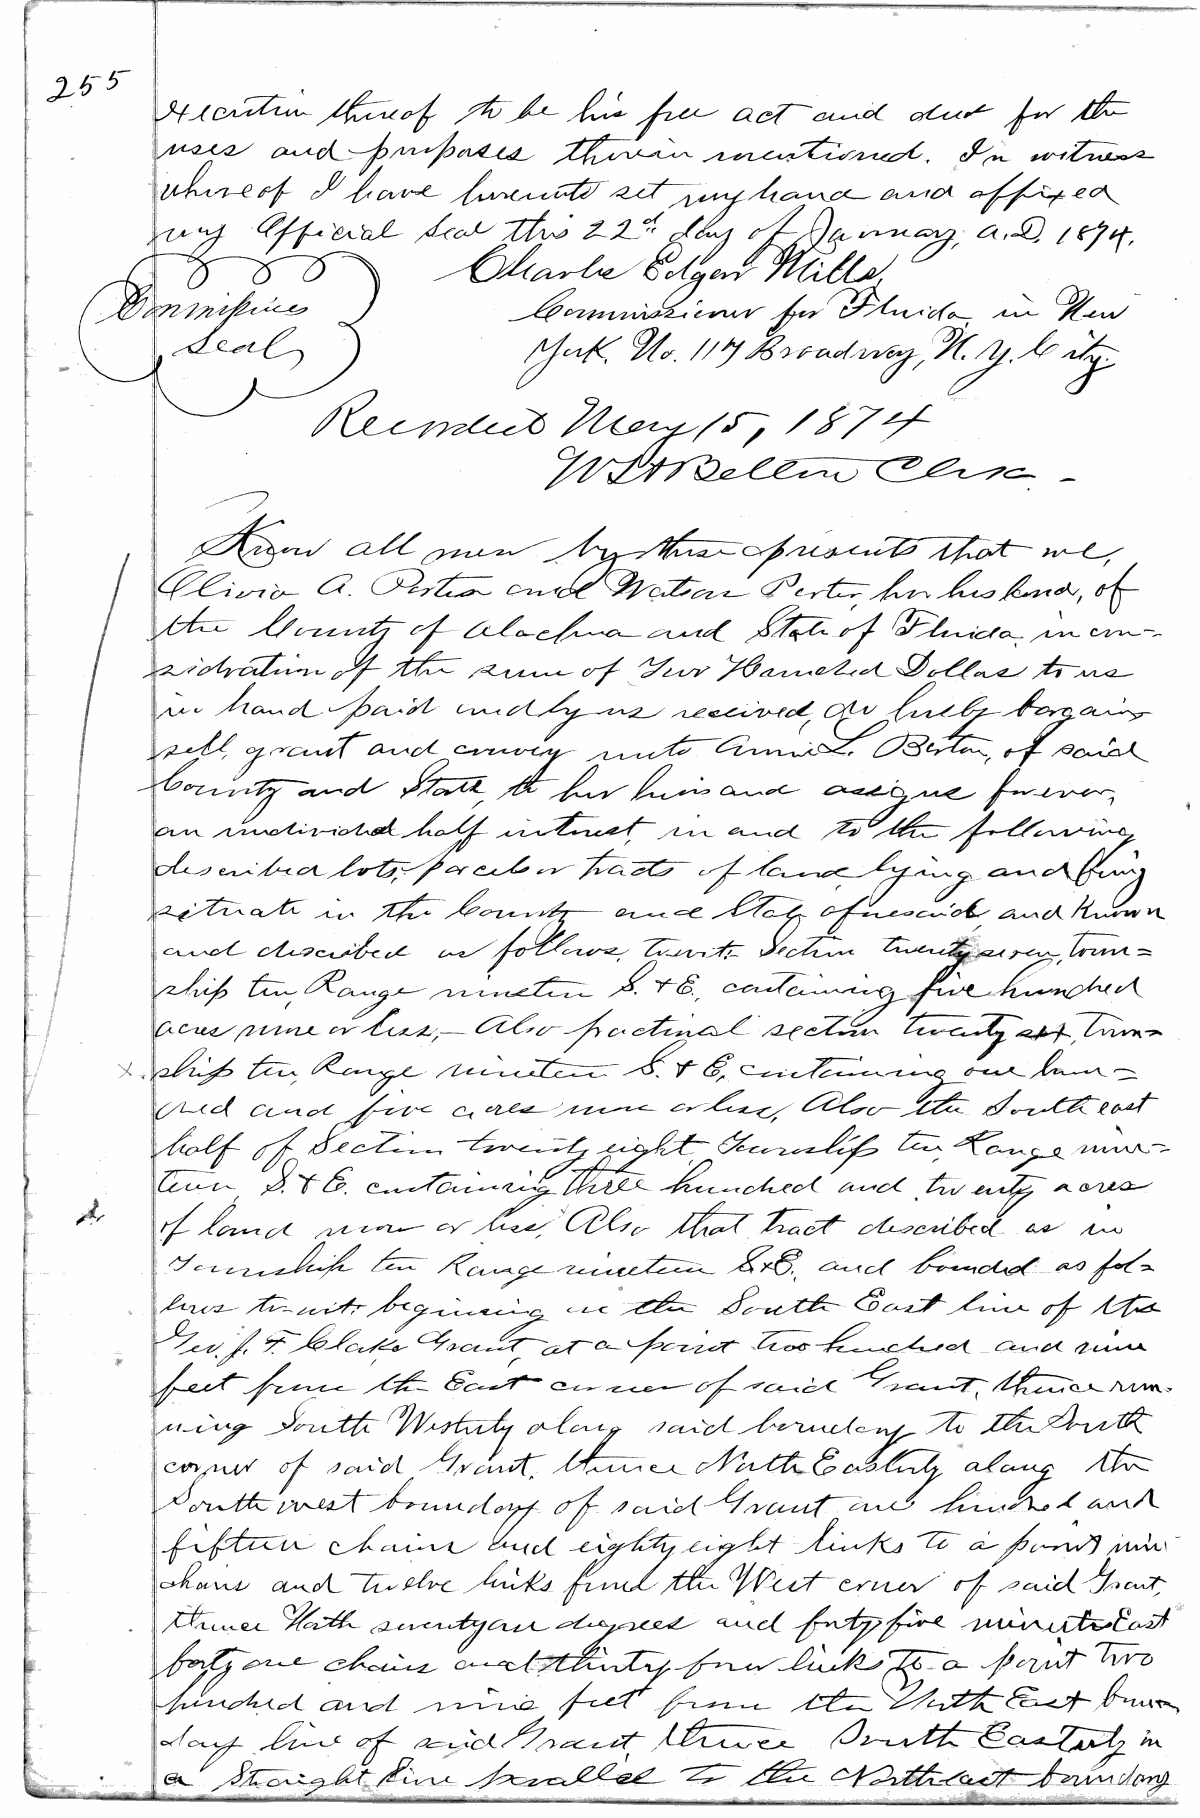 255
execution thereof to be his free act and deed for the
uses and purposes therein mentioned. In witness
whereof I have hereunto set my hand and affixed
my Official Seal this 22d day of January, A.D. 1874.
Charles Edgar Mills
Commissioners
Seal
Commissioner for Florida in New
York. No. 117 Broadway, N. Y. City.
Recorded May 15, 1874
Clerk.
Know all men by these presents that we,
Olivia A. Porter and Watson Porter, her husband, of
the County of Alachua and State of Florida in con-
sideration of the sum of Two Hundred Dollars to us
in hand paid and by us received, do hereby bargain
sell, grant and convey unto Annie L. Barton, of said
County and State, to her heirs and assigns forever,
an undivided half interest, in and to the following
described lots, parcels or tracts of land lying and being
situate in the County and State aforesaid, and known
and described as follows, to wit: Section twenty seven, town=
ship ten, Range nineteen S. & E., containing five hundred
acres more or less,- Also fractional section twenty six, town=
ship ten, Range nineteen S. & E. containing one hun=
dred and five acres more or less, Also the South east
half of Section twenty eight Township ten, Range nine=
teen S. & E. containing three hundred and twenty acres
of land more or less, Also that tract described as in
Township ten Range nineteen S.&E., and bounded as fol=
lows to-wit: beginning in the South East line of the
Geo. J. F. Clarke Grant, at a point two hundred and nine
feet from the East corner of said Grant, thence run-
ning South Westerly along said boundary to the South
corner of said Grant, thence North Easterly along the
South west boundary of said Grant one hundred and
fifteen chains and eighty eight links to a point nine
chains and twelve links from the West corner of said Grant,
thence North seventy one degrees and forty five minutes East
forty one chains and thirty four links to a point two
hundred and nine feet from the North East boun
dary line of said Grant, thence South Easterly in
a straight line parallel to the North east boundary